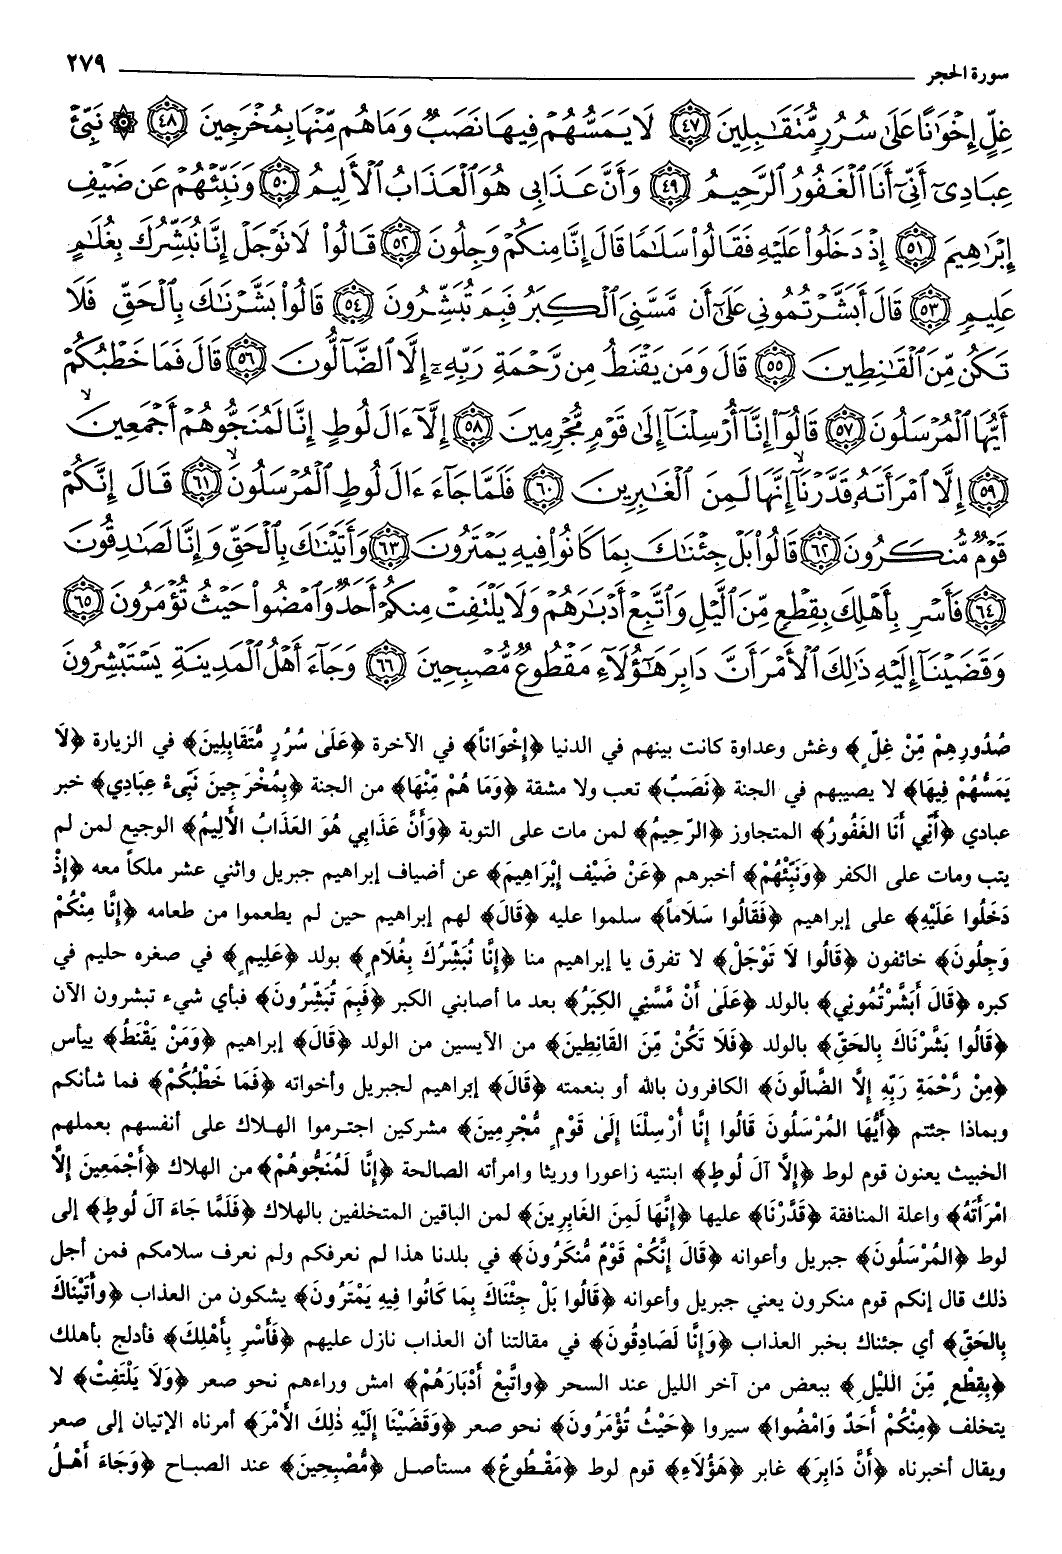 سورة الحجر ٢٧٩
غِلٍّ إِخْوَٰنًا عَلَىٰ سُرُرٍ مُّتَقَـٰبِلِينَ ﴿٤٧﴾ لَا يَمَسُّهُمْ فِيهَا نَصَبٌ وَمَا هُم مِّنْهَا بِمُخْرَجِينَ ﴿٤٨﴾ ۞ نَبِّئْ
عِبَادِىٓ أَنِّىٓ أَنَا ٱلْغَفُورُ ٱلرَّحِيمُ ﴿٤٩﴾ وَأَنَّ عَذَابِى هُوَ ٱلْعَذَابُ ٱلْأَلِيمُ ﴿٥٠﴾ وَنَبِّئْهُمْ عَن ضَيْفِ
إِبْرَٰهِيمَ ﴿٥١﴾ إِذْ دَخَلُوا۟ عَلَيْهِ فَقَالُوا۟ سَلَـٰمًا قَالَ إِنَّا مِنكُمْ وَجِلُونَ ﴿٥٢﴾ قَالُوا۟ لَا تَوْجَلْ إِنَّا نُبَشِّرُكَ بِغُلَـٰمٍ
عَلِيمٍ ﴿٥٣﴾ قَالَ أَبَشَّرْتُمُونِى عَلَىٰٓ أَن مَّسَّنِىَ ٱلْكِبَرُ فَبِمَ تُبَشِّرُونَ ﴿٥٤﴾ قَالُوا۟ بَشَّرْنَـٰكَ بِٱلْحَقِّ فَلَا
تَكُن مِّنَ ٱلْقَـٰنِطِينَ ﴿٥٥﴾ قَالَ وَمَن يَقْنَطُ مِن رَّحْمَةِ رَبِّهِۦٓ إِلَّا ٱلضَّآلُّونَ ﴿٥٦﴾ قَالَ فَمَا خَطْبُكُمْ
أَيُّهَا ٱلْمُرْسَلُونَ ﴿٥٧﴾ قَالُوٓا۟ إِنَّآ أُرْسِلْنَآ إِلَىٰ قَوْمٍ مُّجْرِمِينَ ﴿٥٨﴾ إِلَّآ ءَالَ لُوطٍ إِنَّا لَمُنَجُّوهُمْ أَجْمَعِينَ
﴿٥٩﴾ إِلَّا ٱمْرَأَتَهُۥ قَدَّرْنَآ إِنَّهَا لَمِنَ ٱلْغَـٰبِرِينَ ﴿٦٠﴾ فَلَمَّا جَآءَ ءَالَ لُوطٍ ٱلْمُرْسَلُونَ ﴿٦١﴾ قَالَ إِنَّكُمْ
قَوْمٌ مُّنكَرُونَ ﴿٦٢﴾ قَالُوا۟ بَلْ جِئْنَـٰكَ بِمَا كَانُوا۟ فِيهِ يَمْتَرُونَ ﴿٦٣﴾ وَأَتَيْنَـٰكَ بِٱلْحَقِّ وَإِنَّا لَصَـٰدِقُونَ
﴿٦٤﴾ فَأَسْرِ بِأَهْلِكَ بِقِطْعٍ مِّنَ ٱلَّيْلِ وَٱتَّبِعْ أَدْبَـٰرَهُمْ وَلَا يَلْتَفِتْ مِنكُمْ أَحَدٌ وَٱمْضُوا۟ حَيْثُ تُؤْمَرُونَ ﴿٦٥﴾
وَقَضَيْنَآ إِلَيْهِ ذَٰلِكَ ٱلْأَمْرَ أَنَّ دَابِرَ هَـٰٓؤُلَآءِ مَقْطُوعٌ مُّصْبِحِينَ ﴿٦٦﴾ وَجَآءَ أَهْلُ ٱلْمَدِينَةِ يَسْتَبْشِرُونَ
صُدُورِهِمْ مِّنْ غِلٍّ﴾ وغش وعداوة كانت بينهم في الدنيا ﴿إِخْوَاناً﴾ في الآخرة ﴿عَلَىٰ سُرُرٍ مُّتَقَابِلِينَ﴾ في الزيارة ﴿لَا
يَمَسُّهُمْ فِيهَا﴾ لا يصيبهم في الجنة ﴿نَصَبٌ﴾ تعب ولا مشقة ﴿وَمَا هُمْ مِّنْهَا﴾ من الجنة ﴿بِمُخْرَجِينَ نَبِّىءْ عِبَادِي﴾ خبر
عبادي ﴿أَنِّي أَنَا الغَفُورُ﴾ المتجاوز ﴿الرَّحِيمُ﴾ لمن مات على التوبة ﴿وَأَنَّ عَذَابِي هُوَ العَذَابُ الأَلِيمُ﴾ الوجيع لمن لم
يتب ومات على الكفر ﴿وَنَبِّئْهُمْ﴾ أخبرهم ﴿عَنْ ضَيْفِ إِبْرَاهِيمَ﴾ عن أضياف إبراهيم جبريل واثني عشر ملكاً معه ﴿إِذْ
دَخَلُوا عَلَيْهِ﴾ على إبراهيم ﴿فَقَالُوا سَلَاماً﴾ سلموا عليه ﴿قَالَ﴾ لهم إبراهيم حين لم يطعموا من طعامه ﴿إِنَّا مِنْكُمْ
وَجِلُونَ﴾ خائفون ﴿قَالُوا لَا تَوْجَلْ﴾ لا تفرق يا إبراهيم منا ﴿إِنَّا نُبَشِّرُكَ بِغُلَامٍ﴾ بولد ﴿عَلِيمٍ﴾ في صغره حليم في
كبره ﴿قَالَ أَبَشَّرْتُمُونِي﴾ بالولد ﴿عَلَىٰ أَنْ مَّسَّنِي الكِبَرُ﴾ بعد ما أصابني الكبر ﴿فَبِمَ تُبَشِّرُونَ﴾ فبأي شيء تبشرون الآن
﴿قَالُوا بَشَّرْنَاكَ بِالحَقِّ﴾ بالولد ﴿فَلَا تَكُنْ مِّنَ القَانِطِينَ﴾ من الآيسين من الولد ﴿قَالَ﴾ إبراهيم ﴿وَمَنْ يَقْنَطُ﴾ ييأس
﴿مِنْ رَّحْمَةِ رَبِّهِ إِلَّا الضَّالُّونَ﴾ الكافرون بالله أو بنعمته ﴿قَالَ﴾ إبراهيم لجبريل وأخواته ﴿فَمَا خَطْبُكُمْ﴾ فما شأنكم
وبماذا جئتم ﴿أَيُّهَا المُرْسَلُونَ قَالُوا إِنَّا أُرْسِلْنَا إِلَىٰ قَوْمٍ مُّجْرِمِينَ﴾ مشركين اجترموا الهلاك على أنفسهم بعملهم
الخبيث يعنون قوم لوط ﴿إِلَّا آلَ لُوطٍ﴾ ابنتيه زاعورا وريثا وامرأته الصالحة ﴿إِنَّا لَمُنَجُّوهُمْ﴾ من الهلاك ﴿أَجْمَعِينَ إِلَّا
امْرَأَتَهُ﴾ واعلة المنافقة ﴿قَدَّرْنَا﴾ عليها ﴿إِنَّهَا لَمِنَ الغَابِرِينَ﴾ لمن الباقين المتخلفين بالهلاك ﴿فَلَمَّا جَاءَ آلَ لُوطٍ﴾ إلى
لوط ﴿المُرْسَلُونَ﴾ جبريل وأعوانه ﴿قَالَ إِنَّكُمْ قَوْمٌ مُّنكَرُونَ﴾ في بلدنا هذا لم نعرفكم ولم نعرف سلامكم فمن أجل
ذلك قال إنكم قوم منكرون يعني جبريل وأعوانه ﴿قَالُوا بَلْ جِئْنَاكَ بِمَا كَانُوا فِيهِ يَمْتَرُونَ﴾ يشكون من العذاب ﴿وأَتَيْنَاكَ
بِالحَقِّ﴾ أي جئناك بخبر العذاب ﴿وَإِنَّا لَصَادِقُونَ﴾ في مقالتنا أن العذاب نازل عليهم ﴿فَأَسْرِ بِأَهْلِكَ﴾ فأدلج بأهلك
﴿بِقِطْعٍ مِّنَ اللَّيْلِ﴾ ببعض من آخر الليل عند السحر ﴿واتَّبِعْ أَدْبَارَهُمْ﴾ امش وراءهم نحو صعر ﴿وَلَا يَلْتَفِتْ﴾ لا
يتخلف ﴿مِنْكُمْ أَحَدٌ وَامْضُوا﴾ سيروا ﴿حَيْثُ تُؤْمَرُونَ﴾ نحو صعر ﴿وَقَضَيْنَا إِلَيْهِ ذٰلِكَ الأَمْرَ﴾ أمرناه الإتيان إلى صعر
ويقال أخبرناه ﴿أَنَّ دَابِرَ﴾ غابر ﴿هَؤُلَاءِ﴾ قوم لوط ﴿مَقْطُوعٌ﴾ مستأصل ﴿مُّصْبِحِينَ﴾ عند الصباح ﴿وَجَاءَ أَهْلُ